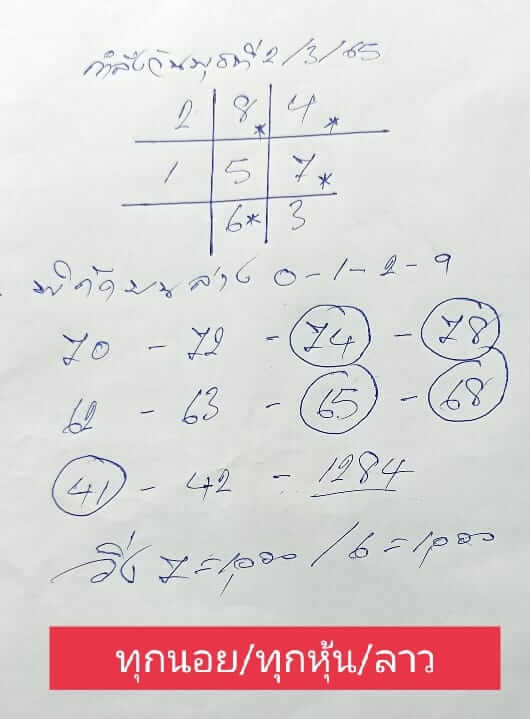 กำลังวันพุธที่ 2/3/65
2 8* 4*
1 5 7*
6* 3
0-1-2-9
70 - 72 - 74 - 78
62 - 63 - 65 - 68
41 - 42 - 1284
วิ่ง 7=1,000 / 6=1,000
ทุกนอย/ทุกหุ้น/ลาว